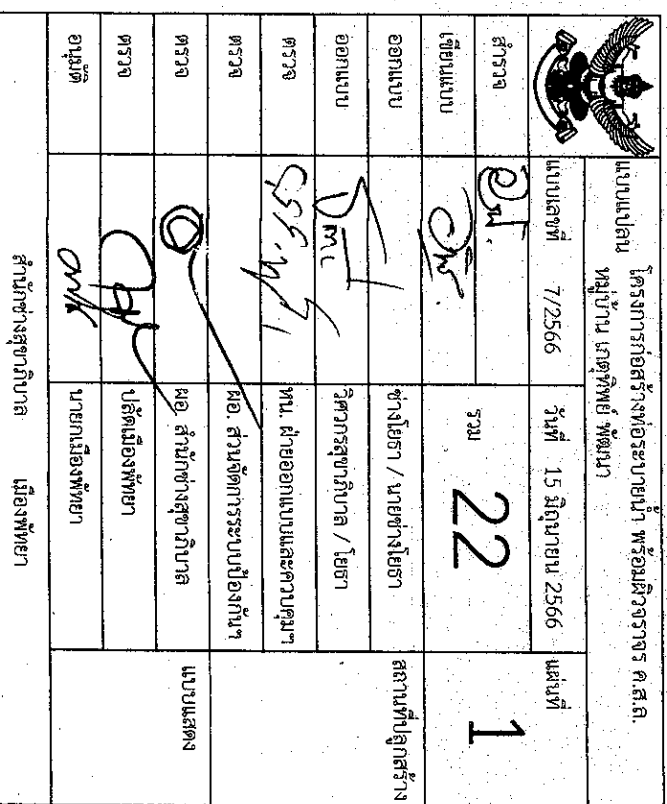 แบบแปลน โครงการก่อสร้างท่อระบายน้ำ พร้อมผิวจราจร ค.ส.ล.
หมู่บ้าน เกตุทิพย์ พัฒนา
แบบเลขที่ 7/2566 วันที่ 15 มิถุนายน 2566 แผ่นที่
สำรวจ รวม 22 1
เขียนแบบ
ออกแบบ ช่างโยธา / นายช่างโยธา สถานที่ปลูกสร้าง
ออกแบบ วิศวกรสุขาภิบาล / โยธา
ตรวจ หน. ฝ่ายออกแบบและควบคุมฯ
ตรวจ ผอ. ส่วนจัดการระบบป้องกันฯ
ตรวจ ผอ. สำนักช่างสุขาภิบาล แบบแสดง
ตรวจ ปลัดเมืองพัทยา
อนุมัติ นายกเมืองพัทยา
สำนักช่างสุขาภิบาล เมืองพัทยา